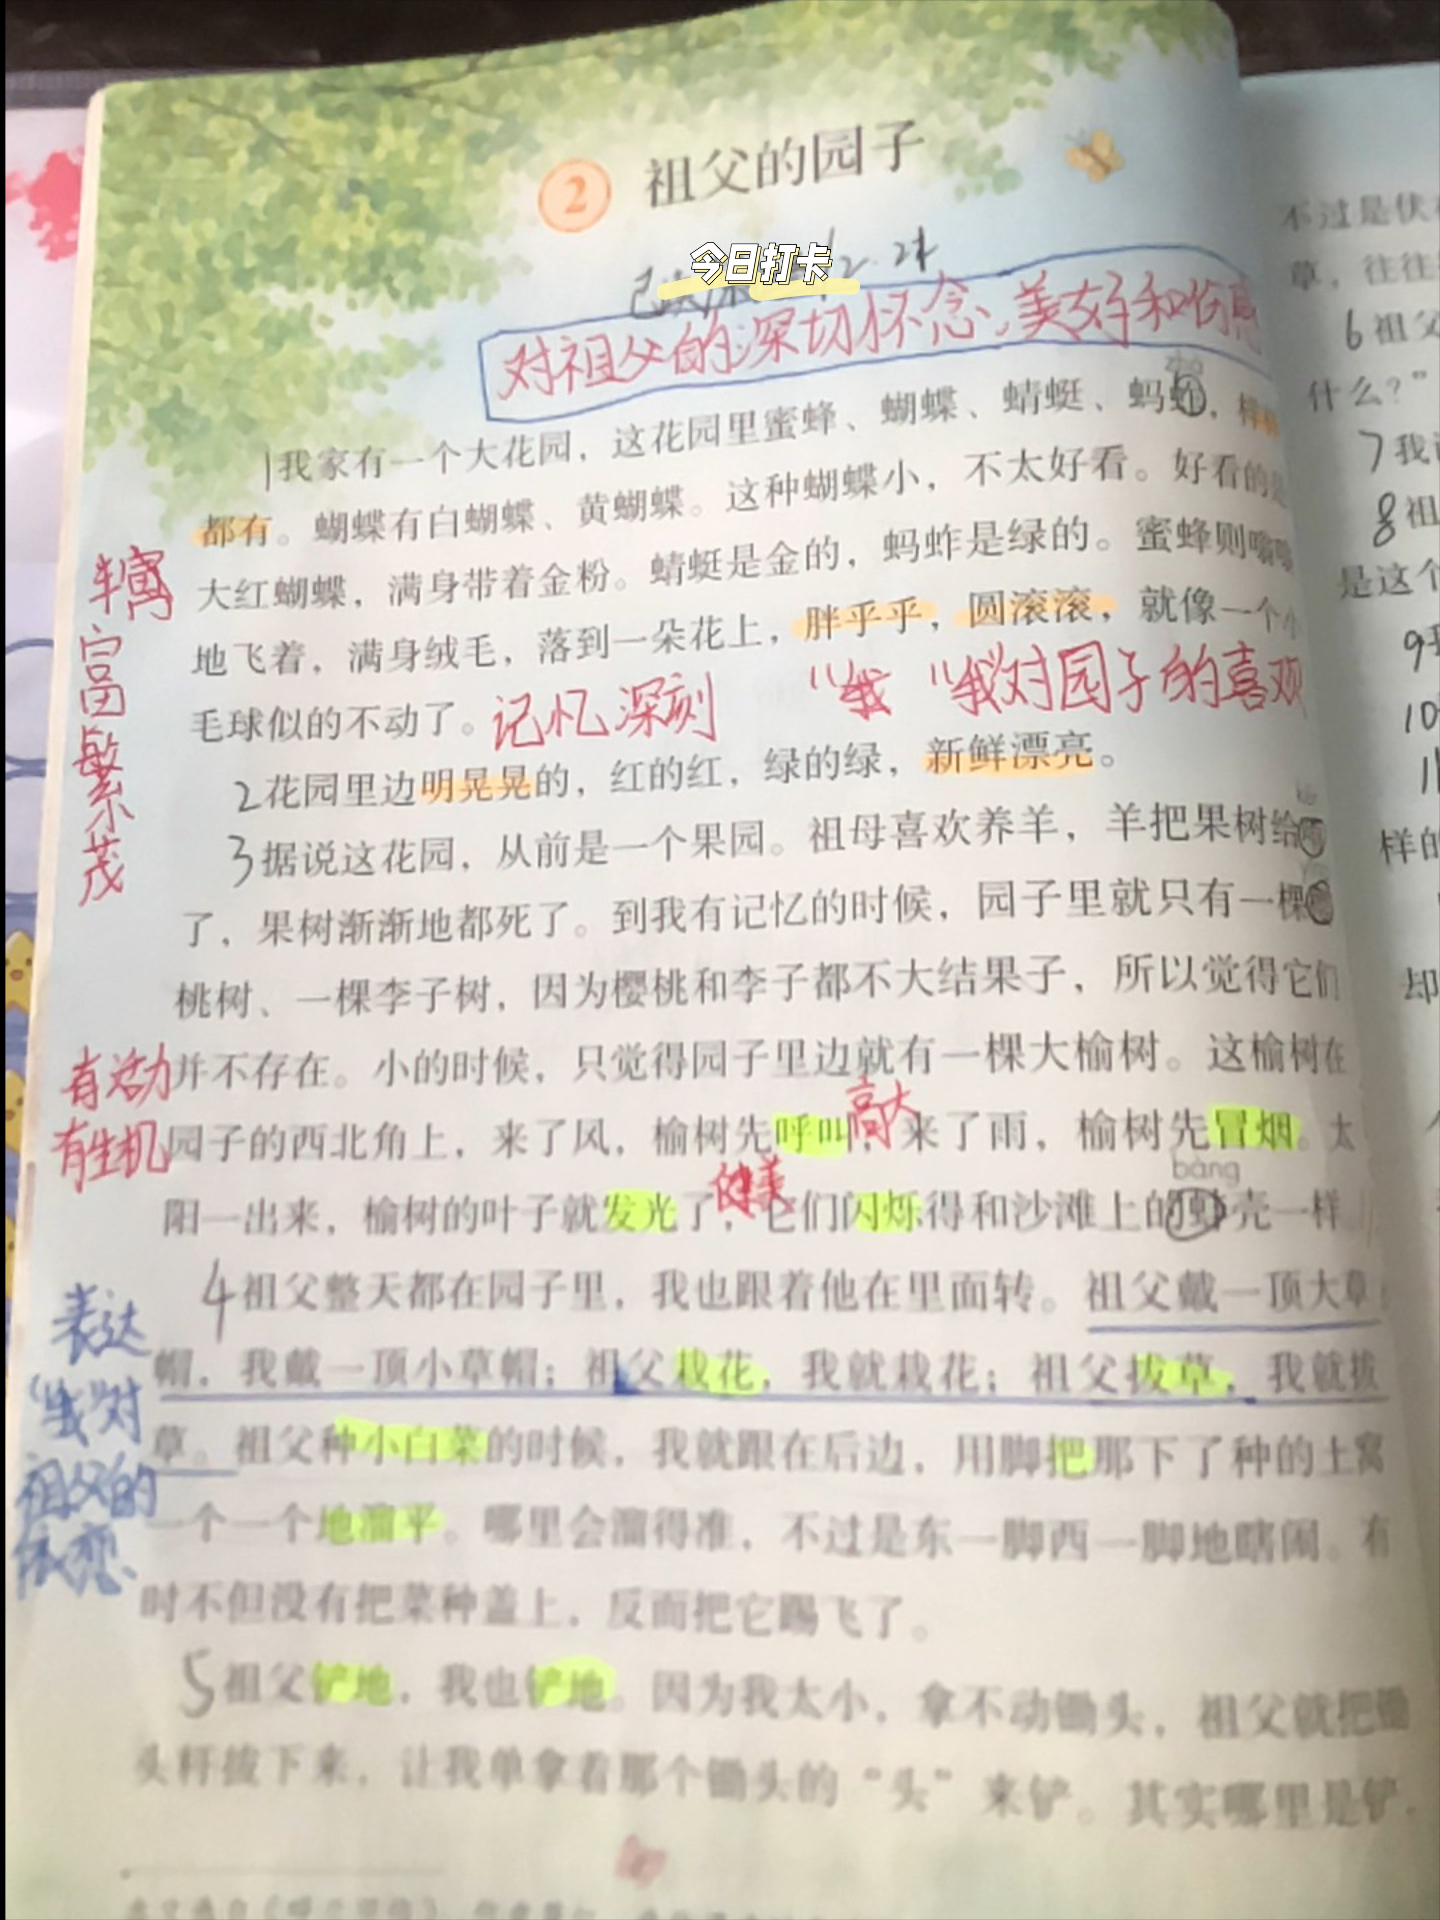 2 祖父的园子
今日打卡
2.24
对祖父的深切怀念、美好和伤感
1我家有一个大花园，这花园里蜜蜂、蝴蝶、蜻蜓、蚂蚱，样样
都有。蝴蝶有白蝴蝶、黄蝴蝶。这种蝴蝶小，不太好看。好看的是
大红蝴蝶，满身带着金粉。蜻蜓是金的，蚂蚱是绿的。蜜蜂则嗡嗡
地飞着，满身绒毛，落到一朵花上，胖乎乎，圆滚滚，就像一个小
毛球似的不动了。
记忆深刻 “我 “我”对园子的喜欢
2花园里边明晃晃的，红的红，绿的绿，新鲜漂亮。
3据说这花园，从前是一个果园。祖母喜欢养羊，羊把果树给
了，果树渐渐地都死了。到我有记忆的时候，园子里就只有一棵
桃树、一棵李子树，因为樱桃和李子都不大结果子，所以觉得它们
并不存在。小的时候，只觉得园子里边就有一棵大榆树。这榆树在
高大
园子的西北角上，来了风，榆树先呼叫，来了雨，榆树先冒烟。太
健美
bàng
阳一出来，榆树的叶子就发光了，它们闪烁得和沙滩上的蚌壳一样
4祖父整天都在园子里，我也跟着他在里面转。祖父戴一顶大草
帽，我戴一顶小草帽；祖父栽花，我就栽花；祖父拔草，我就拔
草。祖父种小白菜的时候，我就跟在后边，用脚把那下了种的土窝
一个一个地溜平。哪里会溜得准，不过是东一脚西一脚地瞎闹。有
时不但没有把菜种盖上，反而把它踢飞了。
5祖父铲地，我也铲地。因为我太小，拿不动锄头，祖父就把锄
头杆拔下来，让我单拿着那个锄头的“头”来铲。其实哪里是铲，
丰富
富
繁
茂
有活力
有生机
表达
“我”对
祖父的
依恋
不过是伏
草，往往
6祖父
什么？”
7我
8祖
是这个
9我
10
11
样的
却